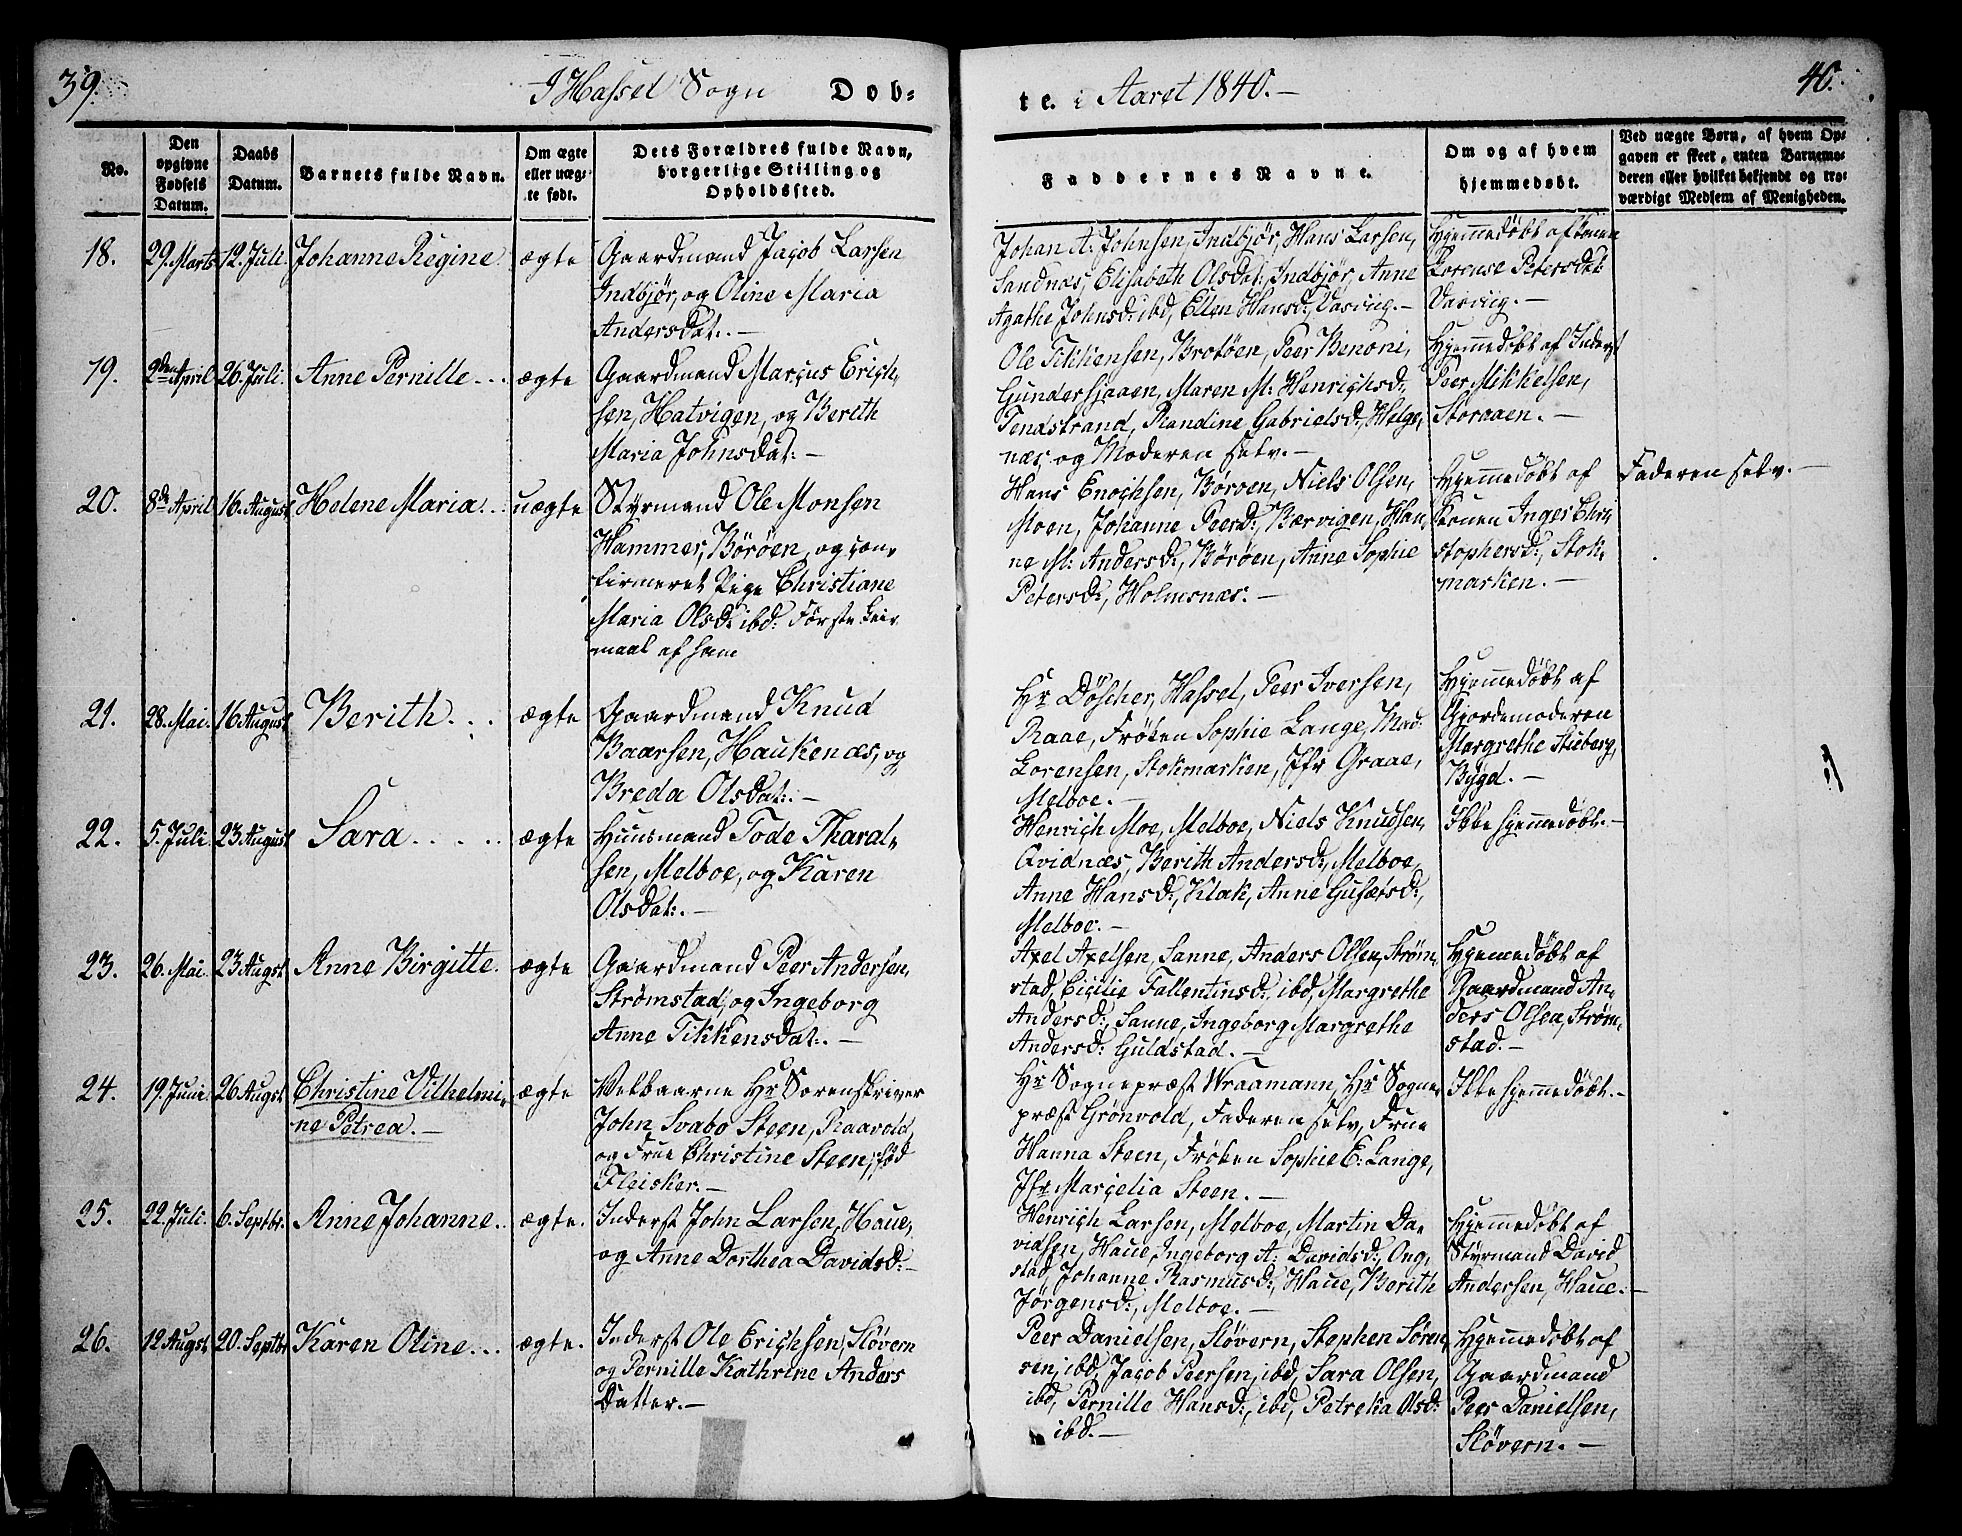 39.
I Hassel Sogn Døb-
te. i Aaret 1840.—
40.
No.
Den
opgivne
Fødsels
Datum.
Daabs
Datum.
Barnets fulde Navn.
Om ægte
eller uæg-
te født.
Dets Forældres fulde Navn,
borgerlige Stilling og
Opholdssted.
Faddernes Navne.
Om og af hvem
hjemmedøbt.
Ved uægte Børn, af hvem Op-
gaven er skeet, enten Barnemo-
deren eller hvilket bekjendt og tro-
værdigt Medlem af Menigheden.
18.
29. Marts
12. Juli
Johanne Regine.
ægte
Gaardmand Jacob Larsen
Indbjør, og Oline Maria
Andersdat:.—
Johan A: Johnsen, Indbjør, Hans Larsen,
Sandnæs, Elisabeth Olsdat:, Indbjør, Anne
Agathe Johnsd: ibd, Ellen Hansd:, Vasviig.—
Hjemmedøbt af Konen
Lorense Petersdat:
Vasviig.—
19.
2den April
26. Juli.
Anne Pernille...
ægte
Gaardmand Marcus Erich-
sen, Hatvigen, og Berith
Maria Johnsdat:—
Ole Tikkensen, Brotøen, Peer Benoni,
Gundersjaaen, Maren M: Henrichsd:,
Tendstrand, Randine Gabrielsd:, Helge-
næs og Moderen selv.—
Hjemmedøbt af Inderst
Peer Mikkelsen,
Storaaen.—
20.
8de April
16. August
Helene Maria...
uægte
Styrmand Ole Monsen
Hammer, Børøen, og con-
firmeret Pige Christiane
Maria Olsd: ibd: Første Leier-
maal af ham
Hans Enochsen, Børøen, Niels Olsen,
Moen, Johanne Peersd:, Bærvigen, Han-
ne M: Andersd:, Børøen, Anne Sophie
Petersd:, Holmsnæs.—
Hjemmedøbt af
Konen Inger Chri-
stophersd:, Stok-
marken.—
Faderen selv.—
21.
28. Mai.
16 August
Berith...
ægte
Gaardmand Knud
Baarsen, Haukenæs, og
Breda Olsdat:.—
Hr Döscher, Hassel, Peer Iversen,
Raae, Frøken Sophie Lange, Mad:
Lorensen, Stokmarken, Jfr Graae,
Melboe.—
Hjemmedøbt af
Gjordemoderen
Margrethe Stueberg,
Bygd.—
22.
5. Juli.
23 August
Sara.....
ægte
Huusmand Tode Tharal-
sen, Melboe, og Karen
Olsdat:.—
Henrich Moe, Melboe, Niels Knudsen,
Qvidnæs, Berith Andersd:, Melboe,
Anne Hansd:, Klak, Anne Gusætsd:,
Melboe.—
Ikke hjemmedøbt.—
23.
26. Mai.
23 Augst
Anne Birgitte.
ægte
Gaardmand Peer Andersen,
Strømstad, og Ingeborg
Anne Tikkensdat:.—
Axel Axelsen, Sanne, Anders Olsen, Strøm-
stad, Cicilie Fallentinsd:, ibd, Margrethe
Andersd:, Sanne, Ingeborg Margrethe
Andersd: Guldstad.—
Hjemmedøbt af
Gaardmand An-
ders Olsen, Strøm-
stad.—
24.
19. Juni
26 Augst
Christine Vilhelmi-
ne Petrea.—
ægte
Velbaarne Hr Sorenskriver
John Svabo Steen, Raavold,
og Frue Christine Steen, fød
Fleisker.—
Hr Sognepræst Wraamann, Hr Sogne-
præst Grønvold, Faderen selv, Frue
Hanna Steen, Frøken Sophie E: Lange,
Jfr Marcelia Steen.—
Ikke hjemmedøbt.—
25.
22. Juli.
6. Septbr.
Anne Johanne..
ægte.
Inderst John Larsen, Haue,
og Anne Dorthea Davidsd:—
Henrich Larsen, Melboe, Martin Da-
vidsen, Haue, Ingeborg A: Davidsd:, Ong-
stad, Johanne Rasmusd:, Haue, Berith
Jørgensd:, Melboe.—
Hjemmedøbt af
Styrmand David
Andersen, Haue.—
26.
12 Augst
20. Septbr
Karen Oline...
ægte.
Inderst Ole Erichsen, Sløvern
og Pernille Kathrine Anders
Datter.—
Peer Danielsen, Sløvern, Stephen Sören-
sen, ibd, Jacob Peersen, ibd, Sara Olsen,
ibd, Pernille Hansd:, ibd, Petreka Olsd:
ibd.—
Hjemmedøbt af
Gaardmand
Peer Danielsen,
Sløvern.—